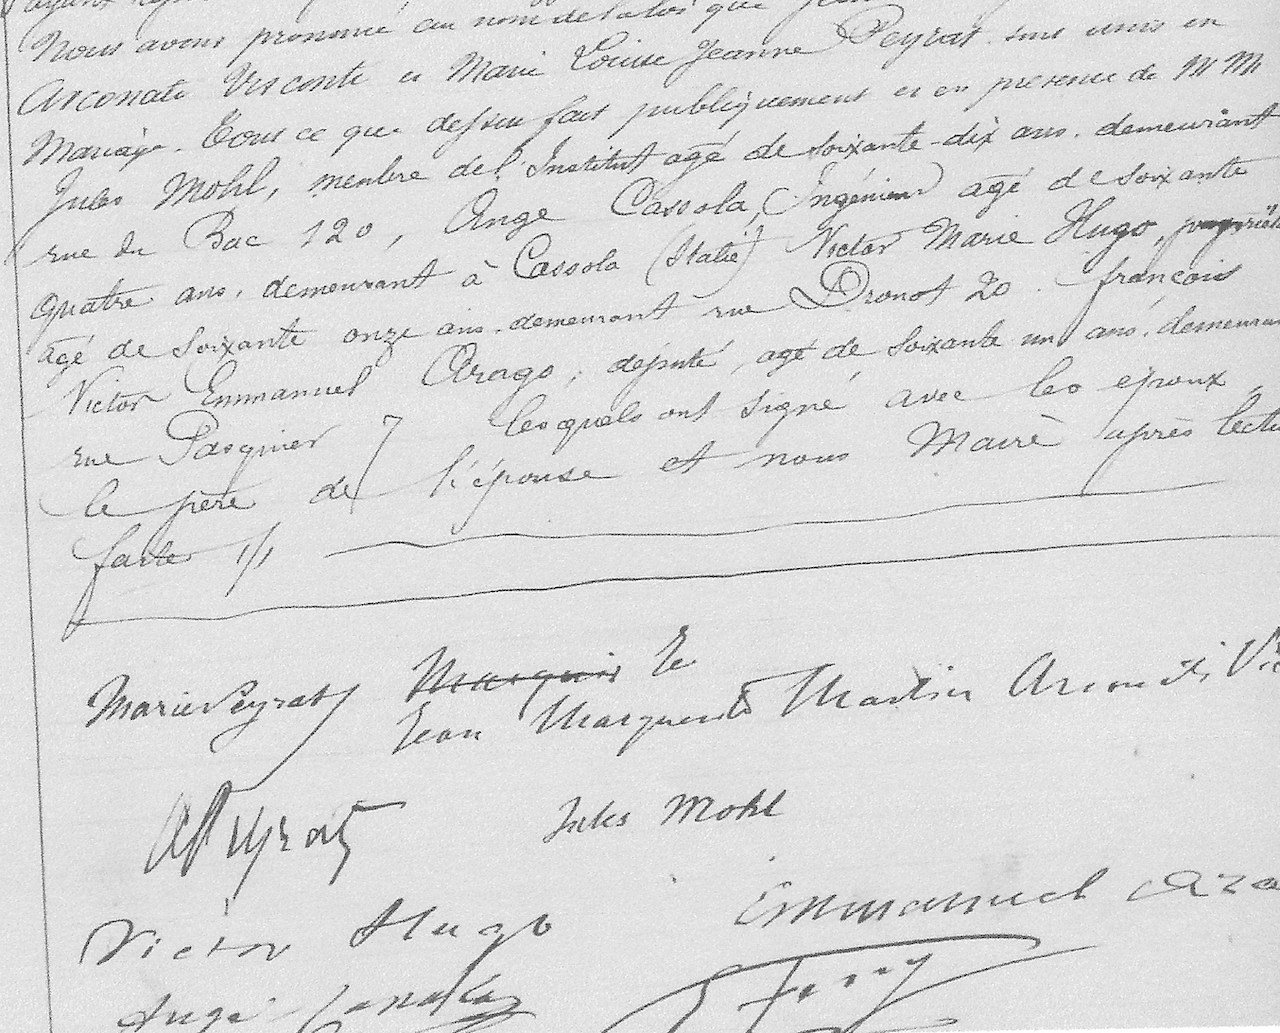 Nous avons prononcé au nom de la loi que
Arconati Visconti et Marie Louise Jeanne Peyrat sont unis en
Mariage. Tout ce que dessus fait publiquement et en présence de M M
Jules Mohl, membre de l'Institut agé de soixante-dix ans. demeurant
rue du Bac 120, Ange Cassola, Ingénieur agé de soixante
quatre ans. demeurant à Cassola (Italie) Victor Marie Hugo,
agé de soixante onze ans. demeurant rue Drouot 20. françois
Victor Emmanuel Arago, député, agé de soixante un ans. demeuran
rue Pasquier 7 lesquels ont signé avec les époux
le père de l'épouse et nous Maire après lectu
faite
Marie Peyrat Marquis
Jean Martin Arconati Vi
A Peyrat Jules Mohl
Victor Hugo Emmanuel Ara
Ange Cassola